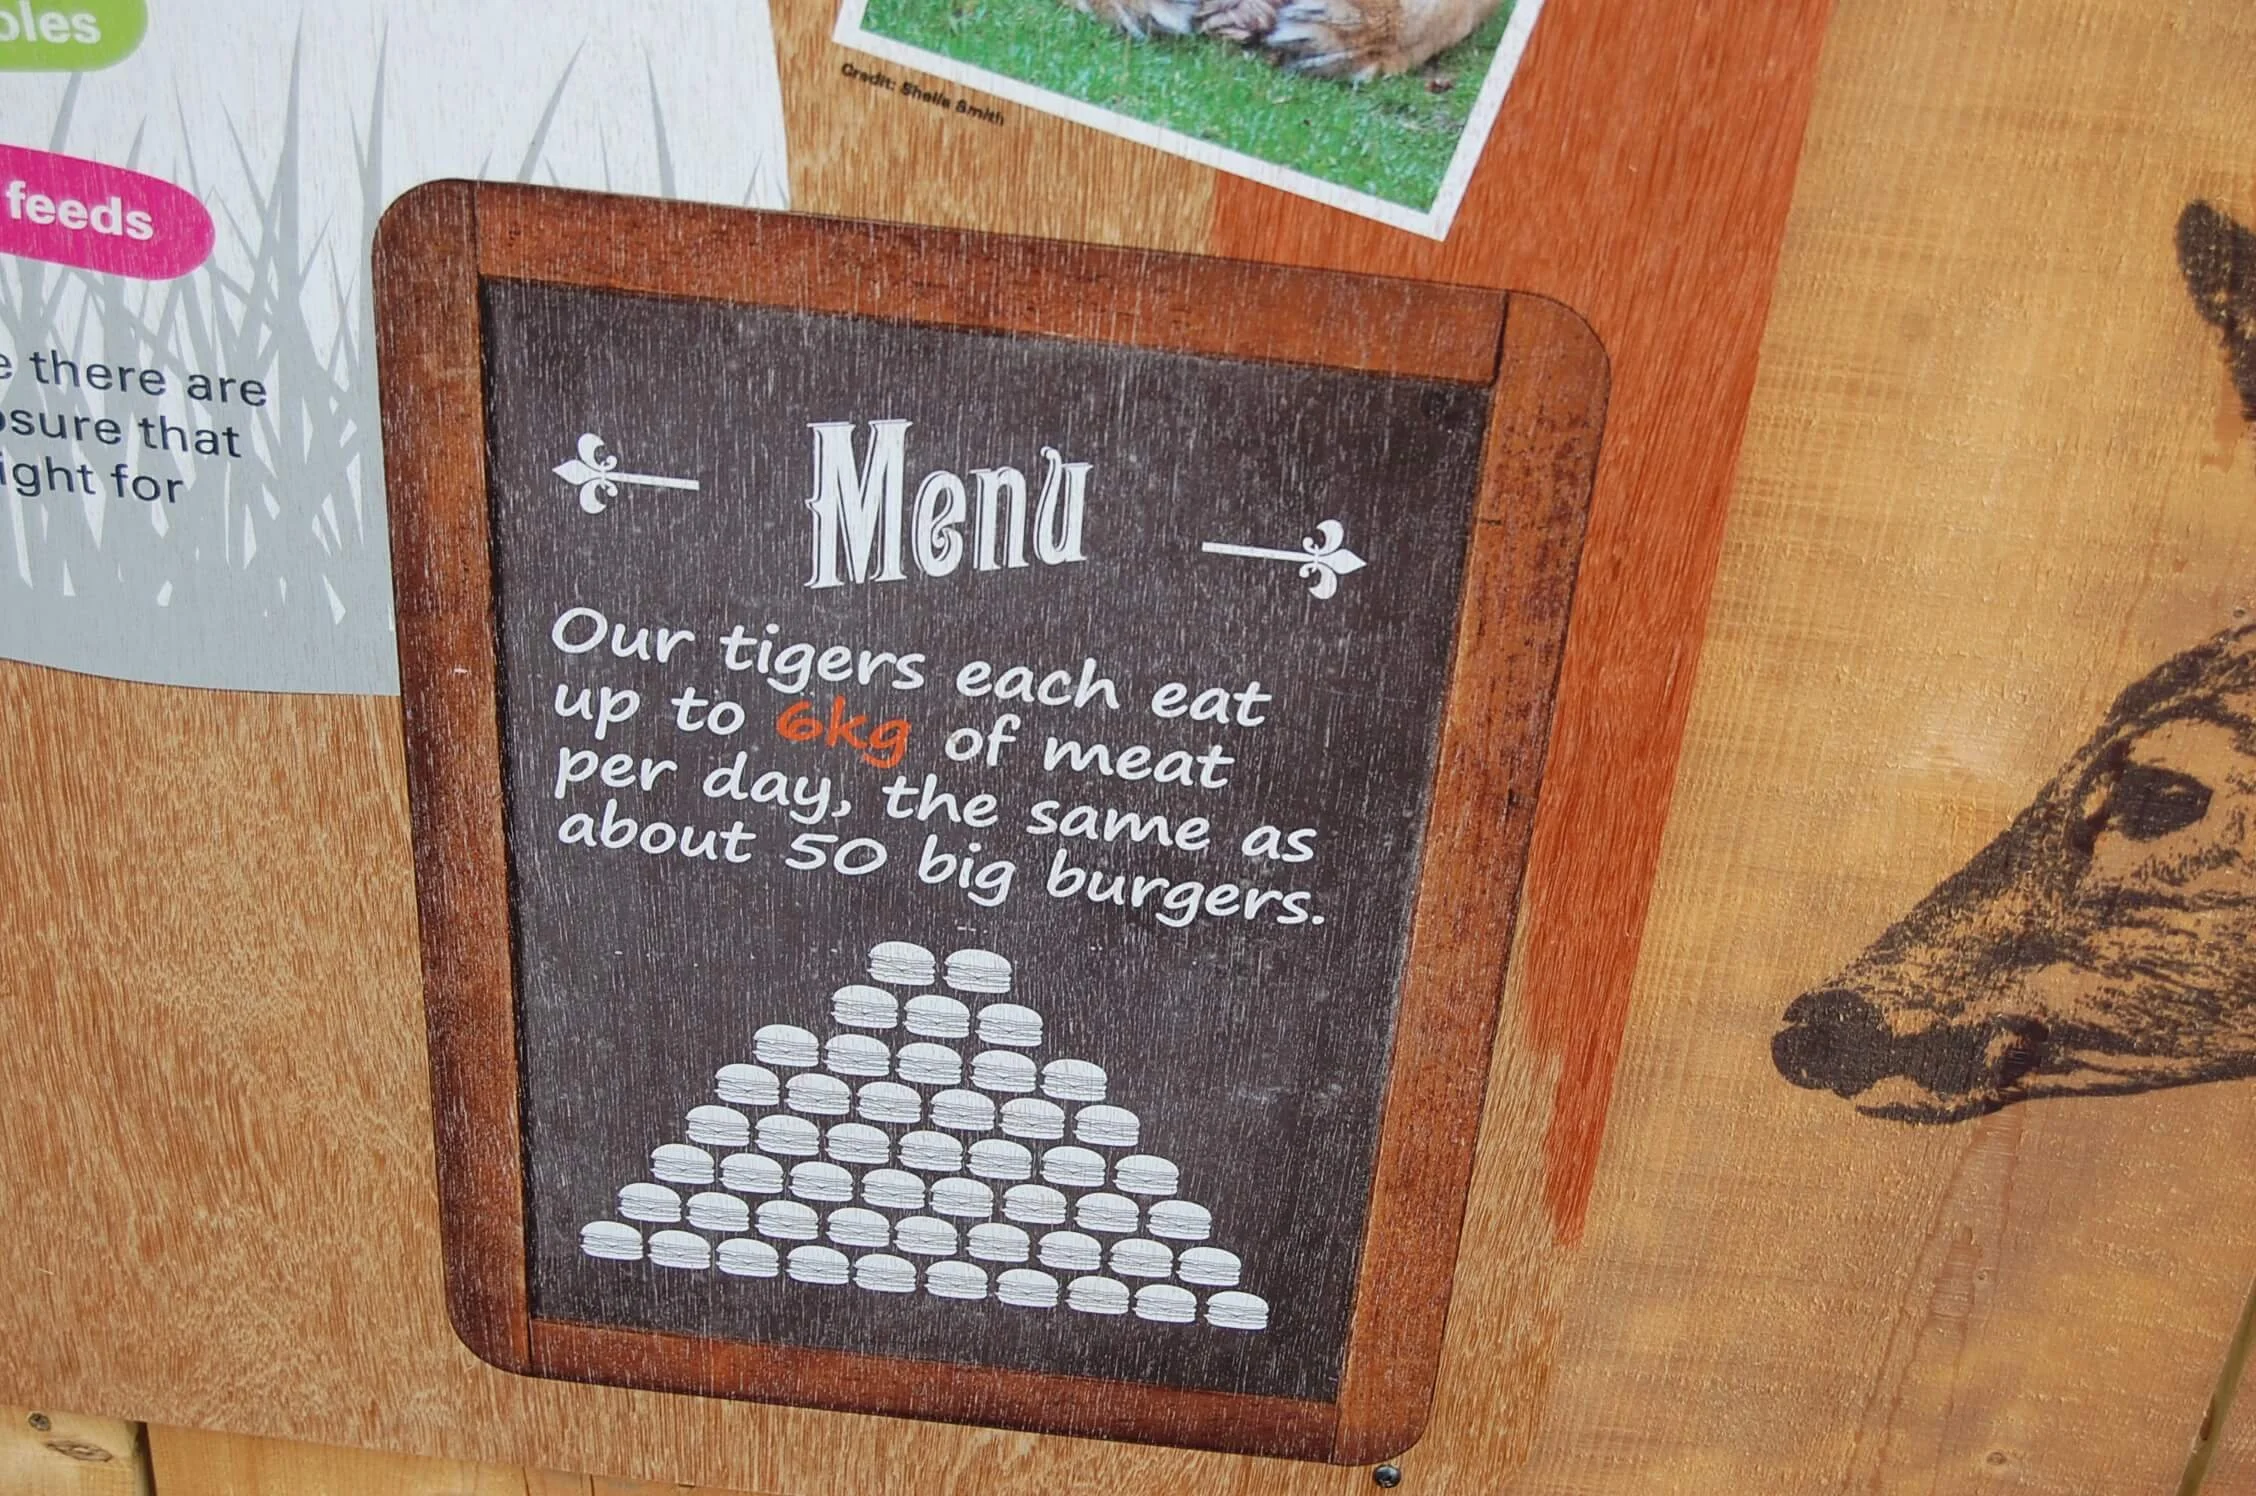 feeds
there are
that
for
Credit: Sheila Smith
Menu
Our tigers each eat
up to 6kg of meat
per day, the same as
about 50 big burgers.